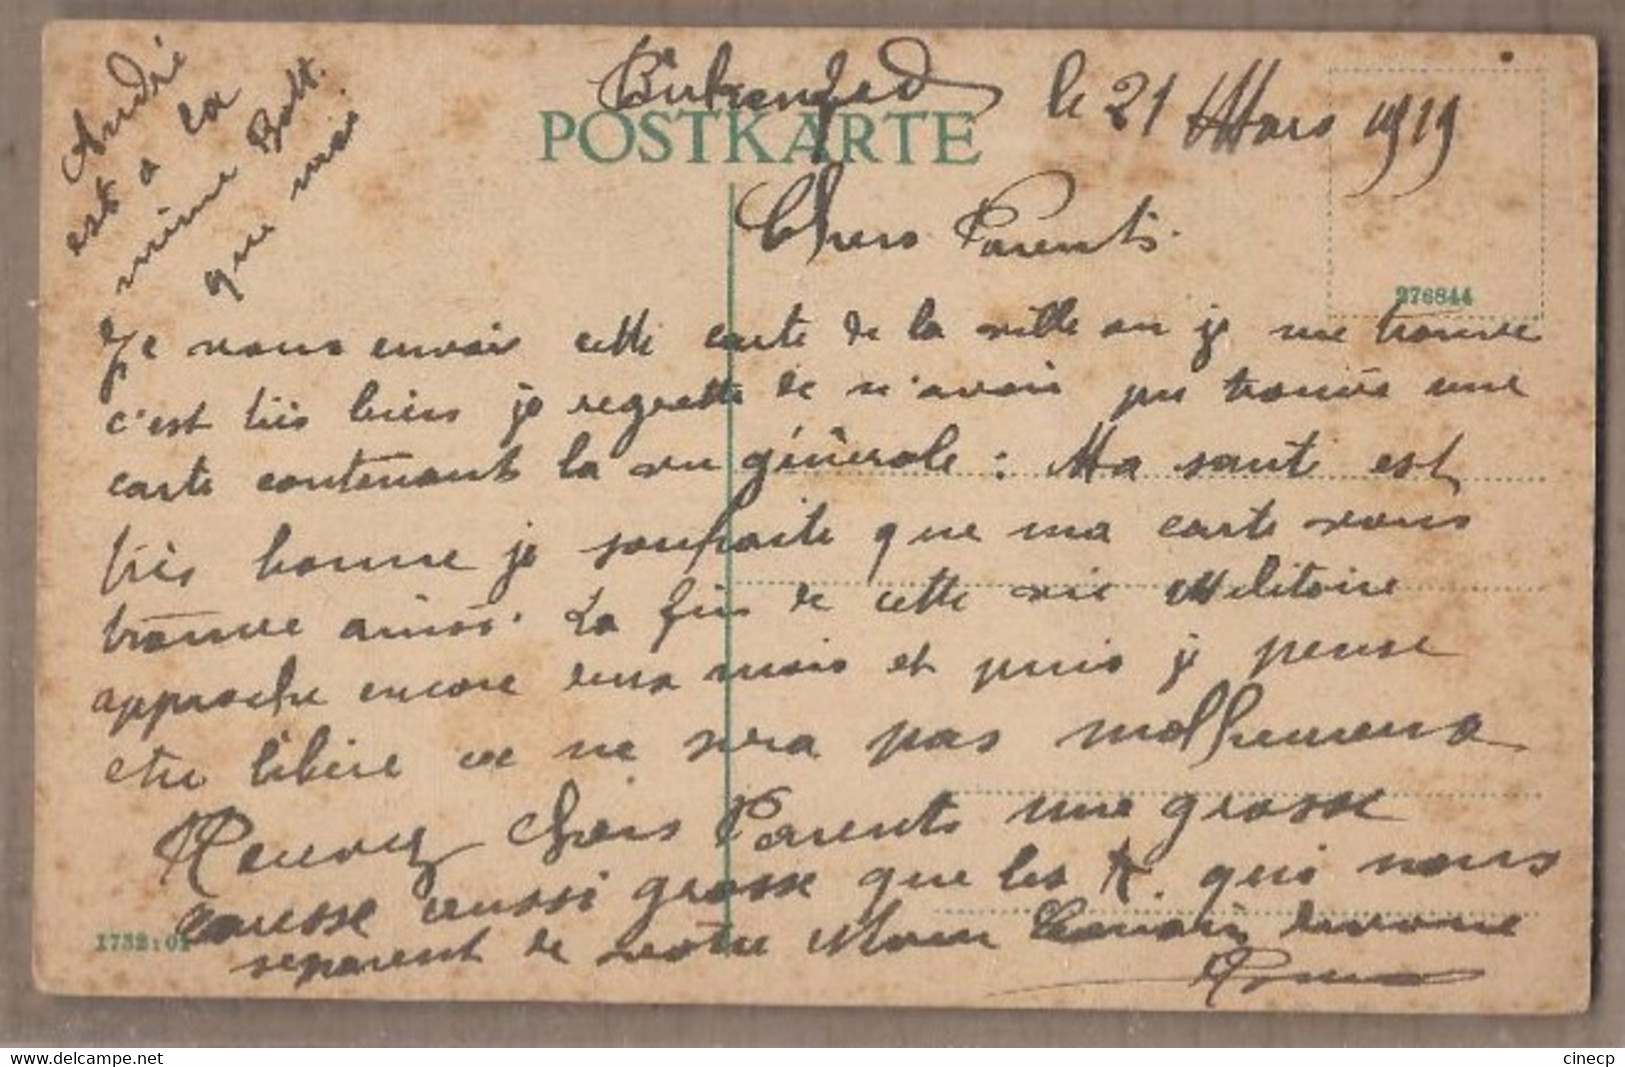 André
est a la
même Batt.
que moi
Birkenfed le 21 Mars 1919
POSTKARTE
Chers Parents.
276844
Je vous envoie cette carte de la ville ou je me trouve
c'est très bien je regrette de n'avoir pu trouvé une
carte contenant la vu générale : Ma santé est
très bonne je souhaite que ma carte vous
trouve ainsi. La fin de cette vie Militaire
approche encore deux mois et puis je pense
etre libéré ce ne sera pas malheureux
Recevez Chers Parents une grosse
caresse aussi grosse que les K. qui nous
1732:01
separent de votre dévoué
cinecp
delcampe.net